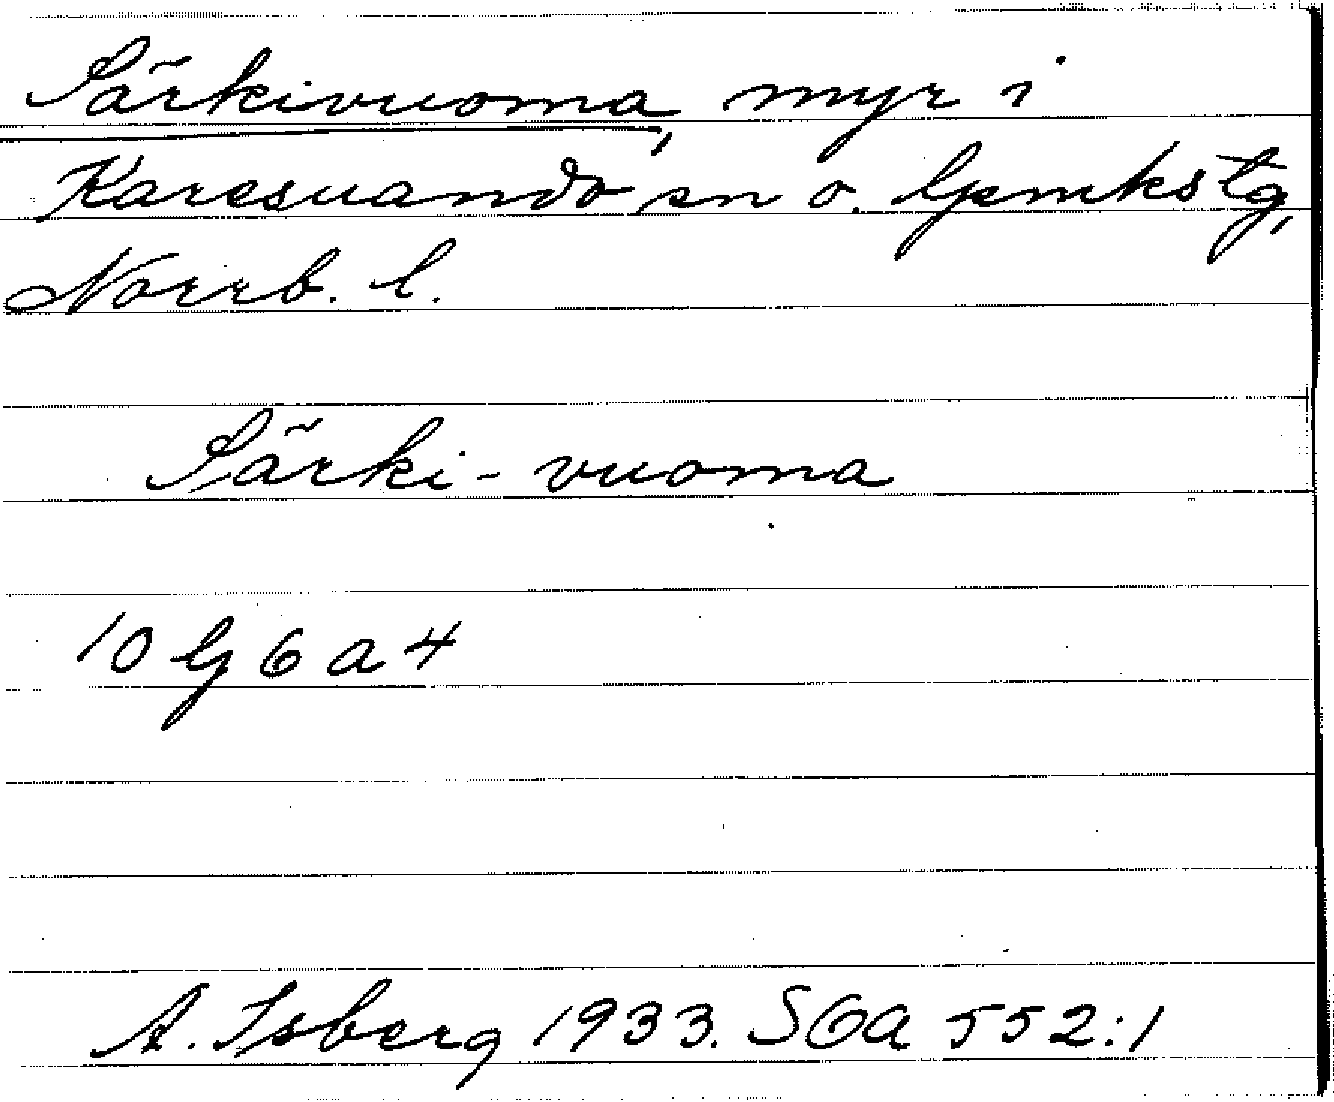 Särkivuoma, myr i
Karesuando sn o. lpmkstg,
Norrb. l.
Särki-vuoma
10 G 6 a 4
A. Isberg 1933. SOA 552:1